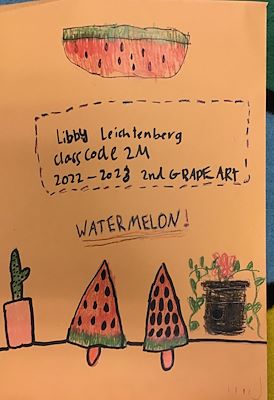 Libby Leichtenberg
class code 2M
2022-2023 2nd GRADE ART
WATERMELON!